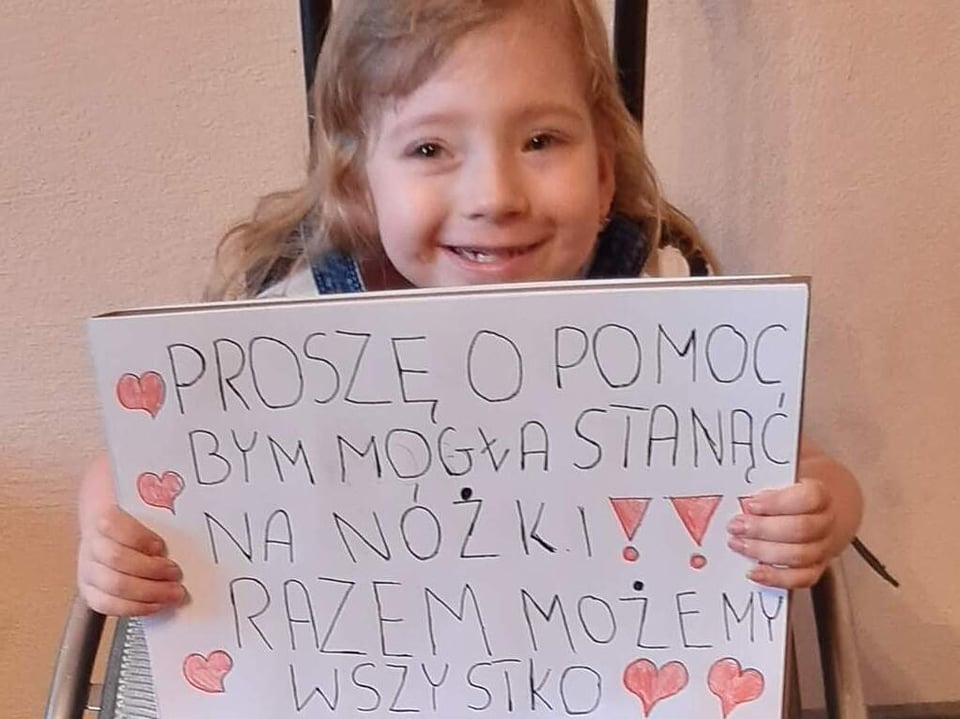 PROSZĘ O POMOC
BYM MOGŁA STANĄĆ
NA NÓŻKI!!!
RAZEM MOŻEMY
WSZYSTKO